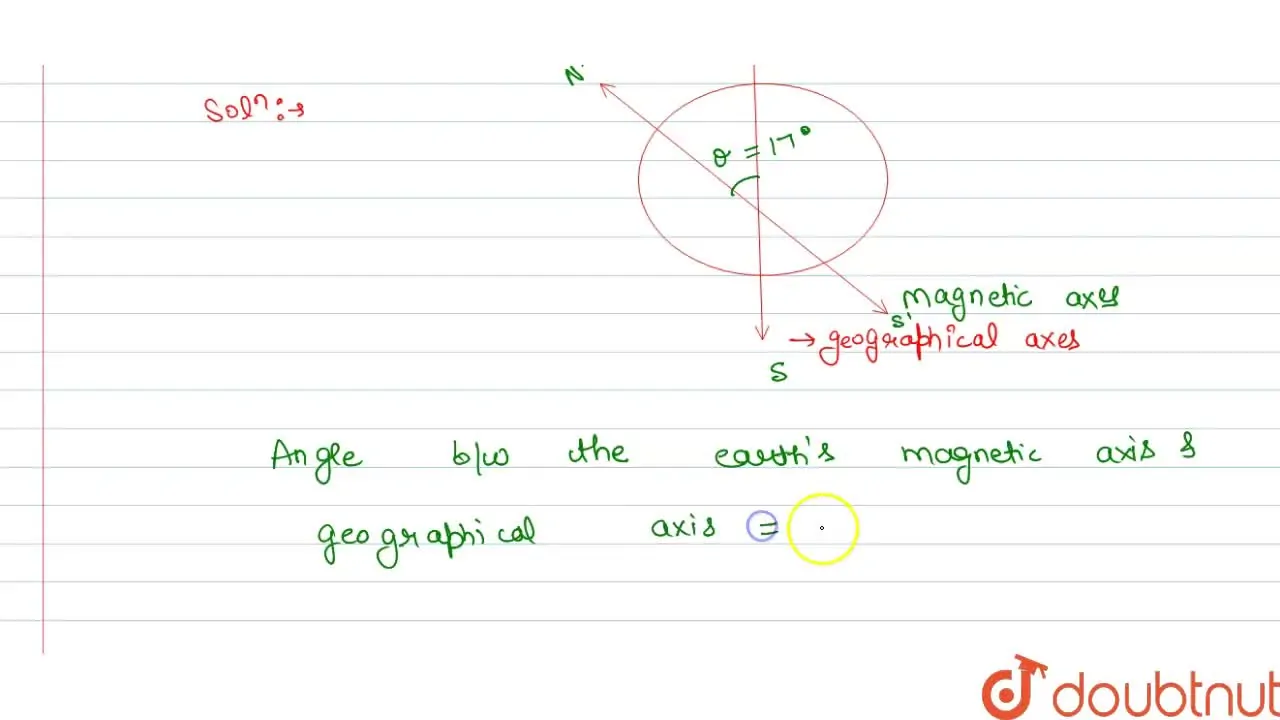 N
Solⁿ:→
θ = 17°
magnetic axes
S'
→ geographical axes
S
Angle b/w the earth's magnetic axis &
geographical axis =
doubtnut